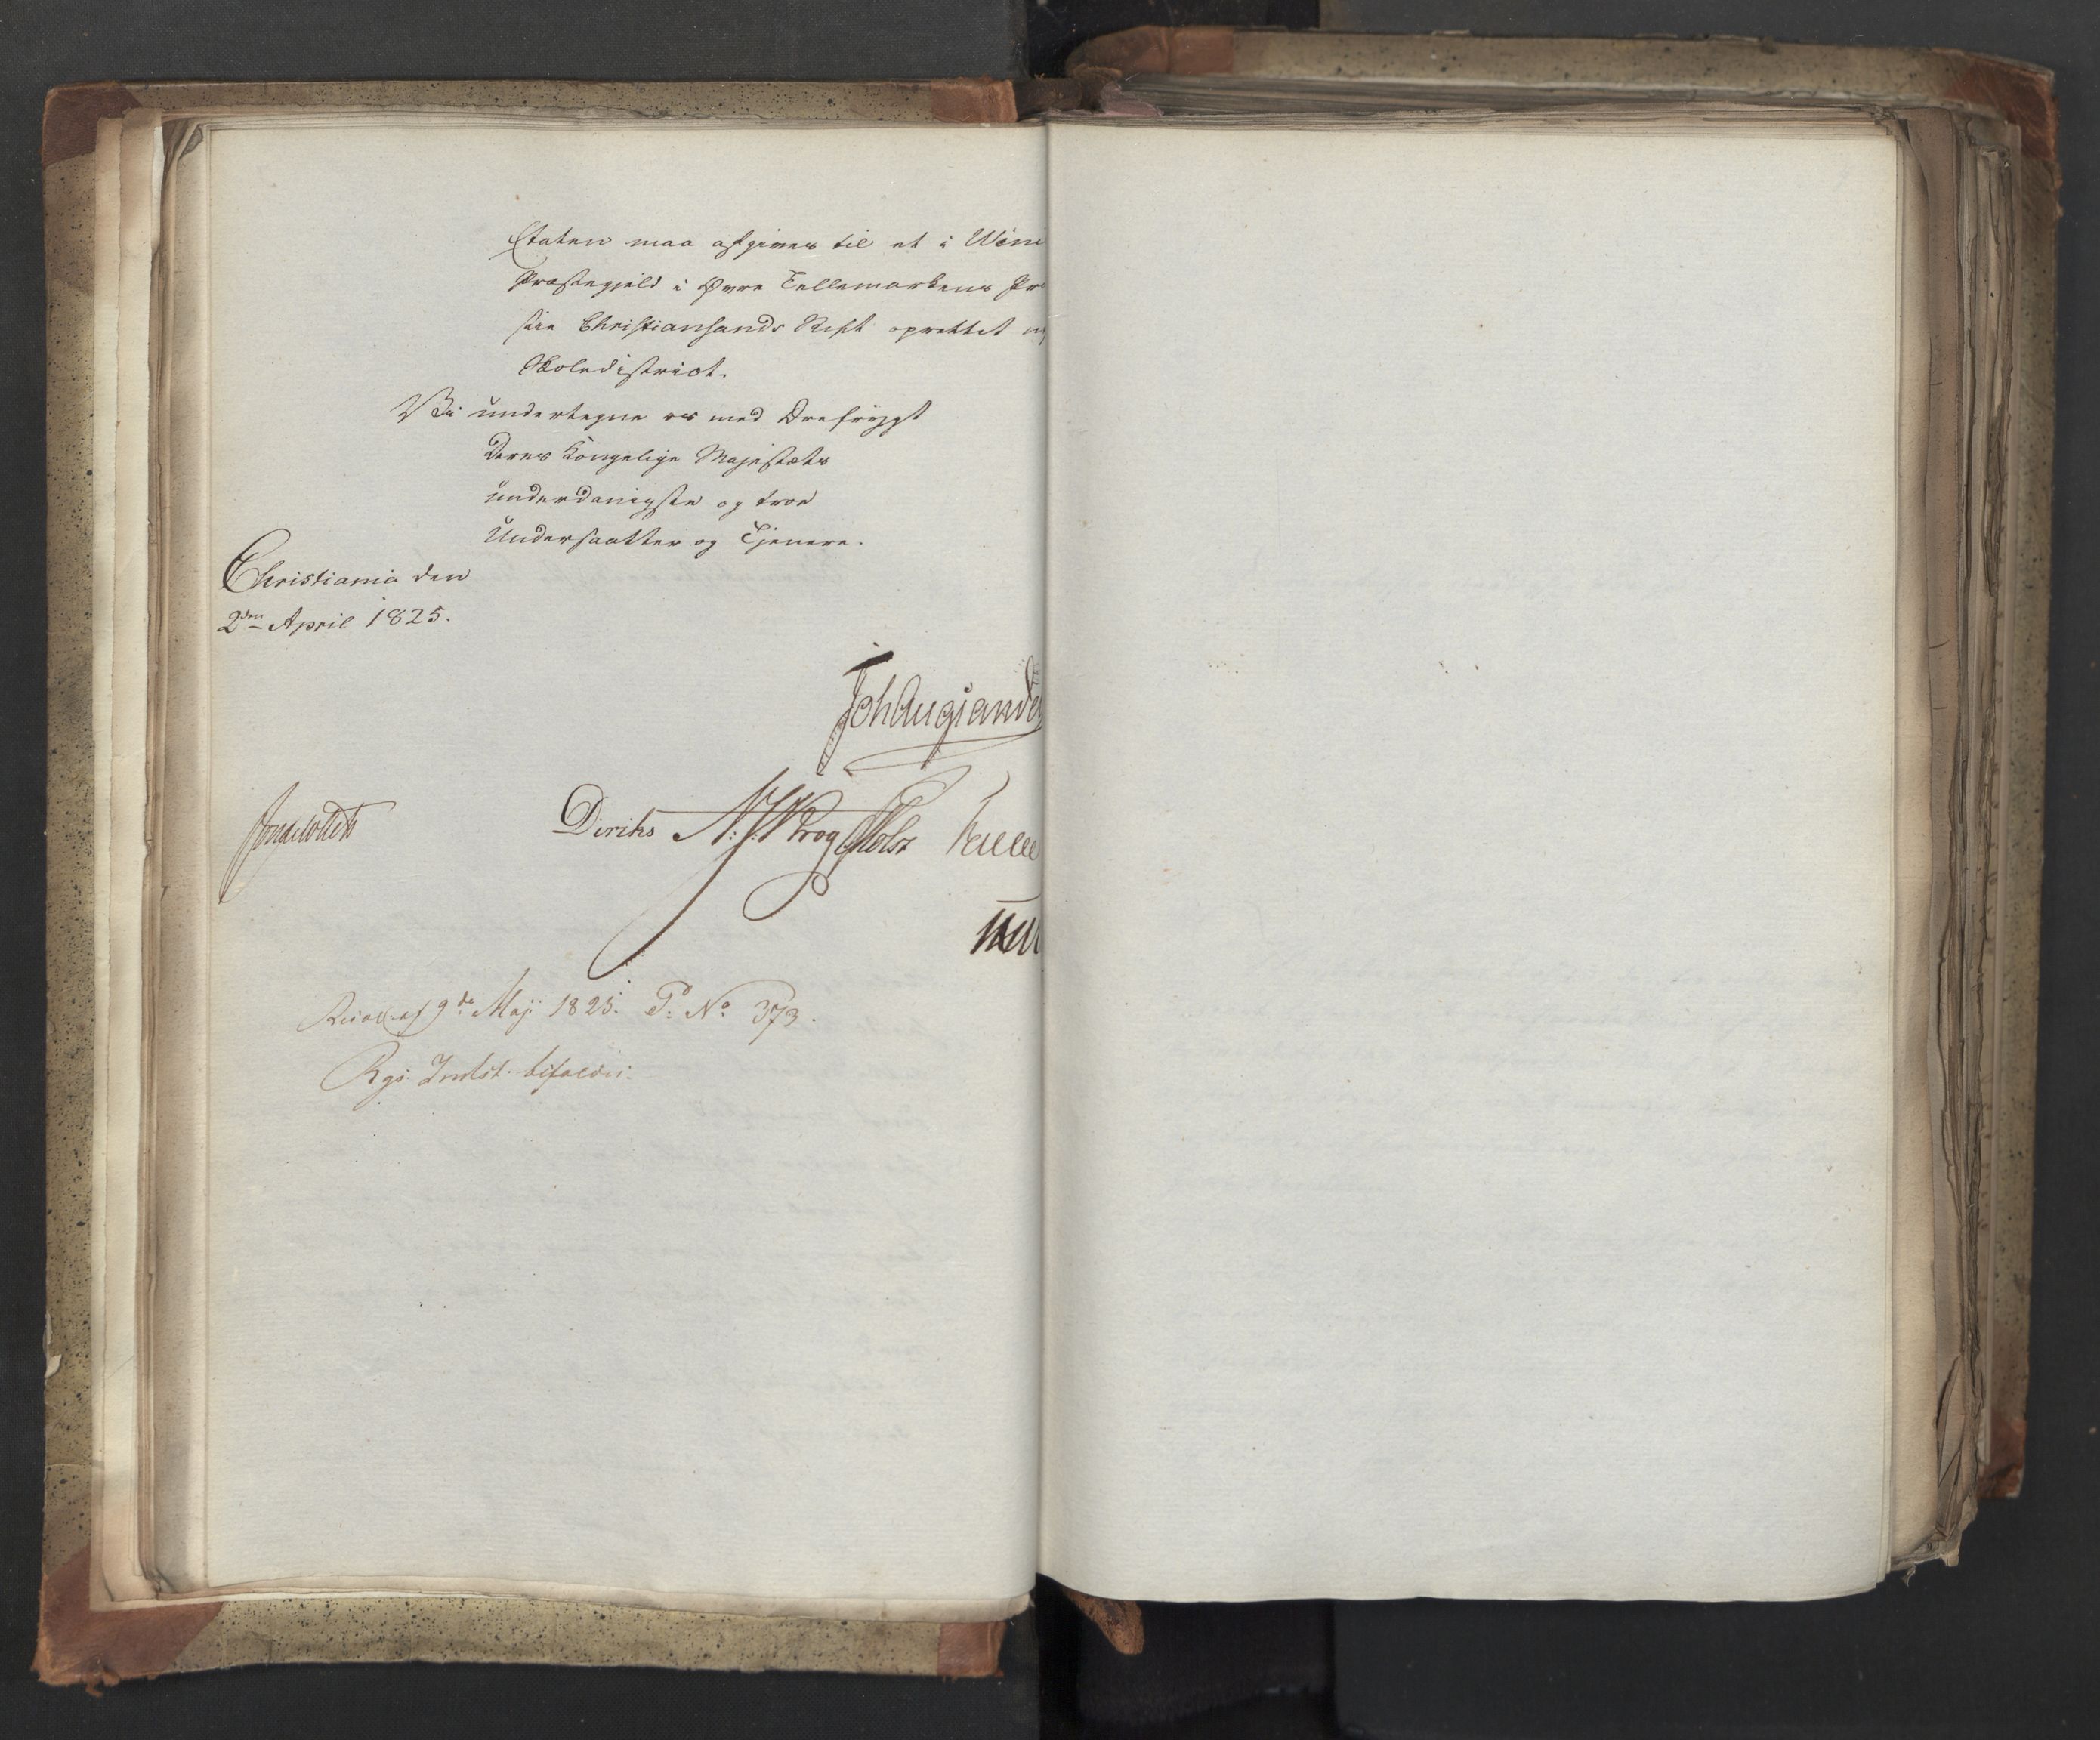 Staten maa afgives til et i Wini
Præstegjeld i Øvre Tellemarkens Pro
stie Christiansands Stift oprettet nyt
Skoledistrict.
Vi undertegne os med Ærefrygt
Deres Kongelige Majestæts
underdanigste og troe
Undersaatter og Tjenere.
Christiania den
2den April 1825.
JohAugSande
Diriks N:J:Krog Holst
Resol: af 9de Maji 1825. P: No 373.
Rgs. Indst. bifaldes.